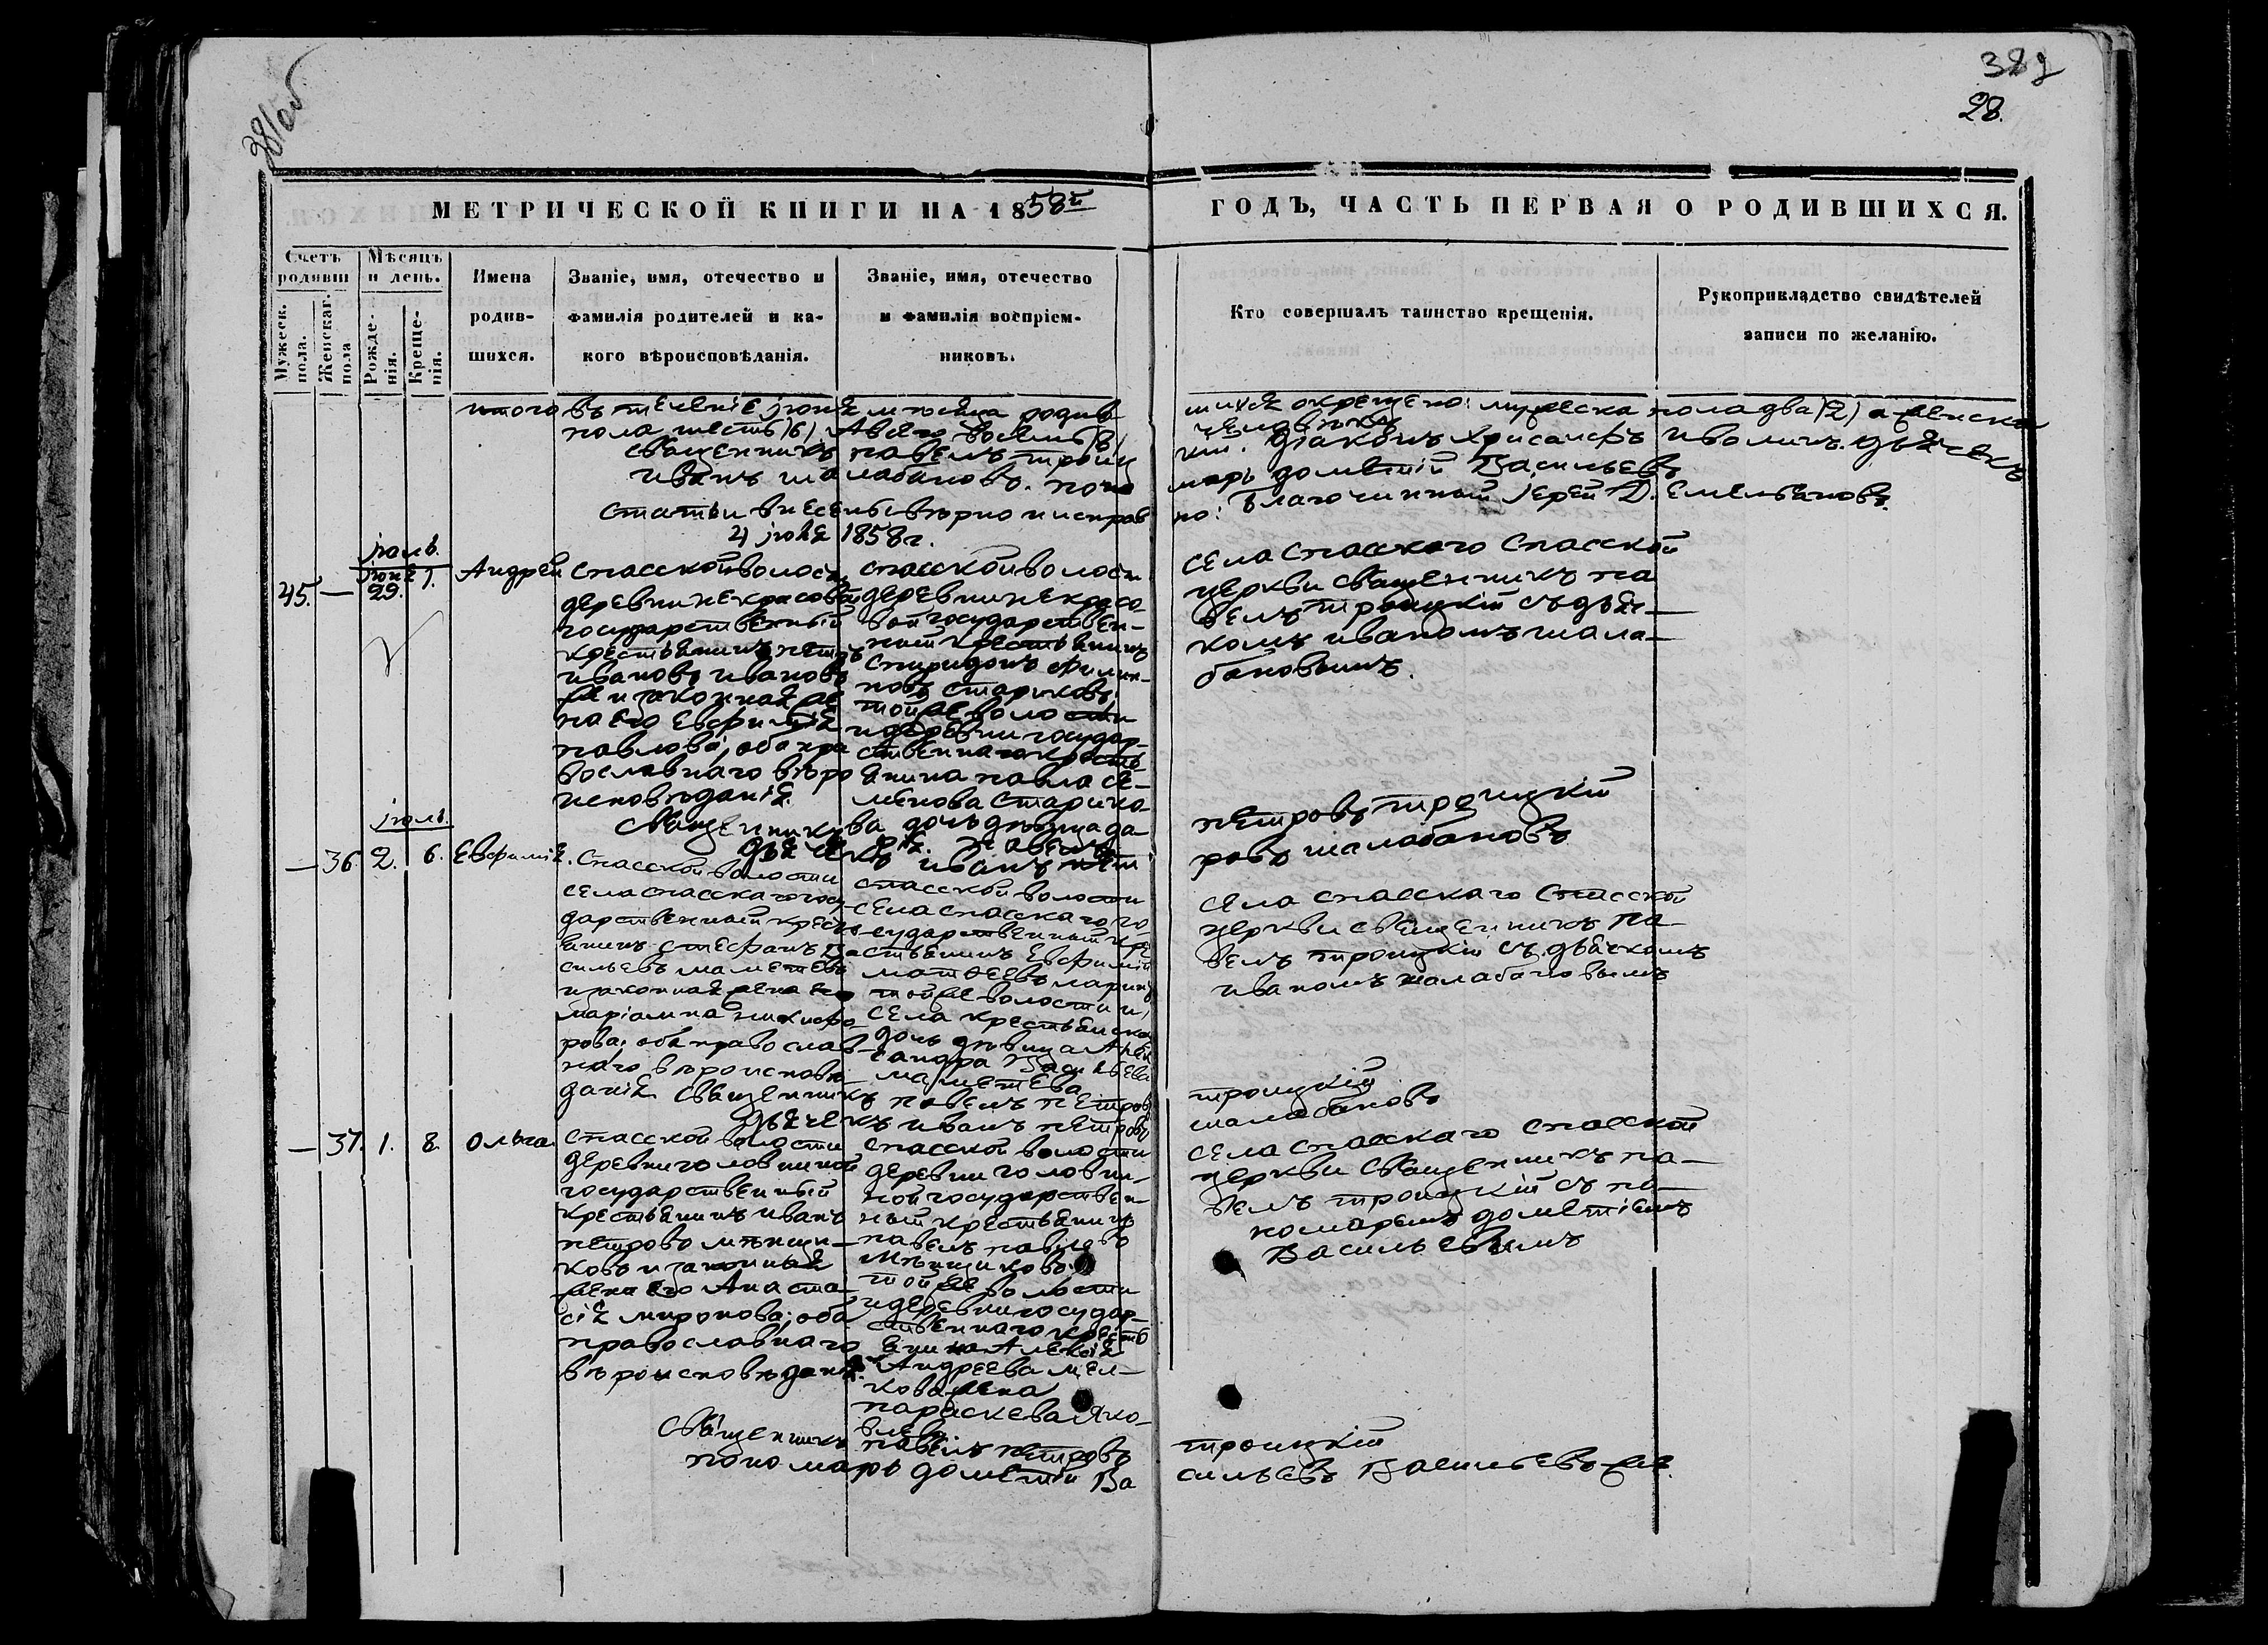 381об
382
28.
МЕТРИЧЕСКОЙ КНИГИ НА 1858й ГОДЪ, ЧАСТЬ ПЕРВАЯ О РОДИВШИХСЯ.
Счетъ родивш
Мужеск. пола.
Женскаг. пола
Мѣсяцъ и день.
Рожде-
нія.
Креще-
нія.
Имена
родив-
шихся.
Званіе, имя, отечество и
фамилія родителей и ка-
кого вѣроисповѣданія.
Званіе, имя, отечество
и фамилія воспріем-
никовъ.
Кто совершалъ таинство крещенія.
Рукоприкладство свидѣтелей
записи по желанію.
итого въ теченіе іюня мѣсяца родив
шихся окрещено: мужеска пола два (2) а женска
пола шесть (6) а всего восемь (8)
человѣкъ
Священникъ Павелъ Троиц
кій. Діаконъ Хрисанфъ Ивалинъ. Дьячекъ
Иванъ Шалабановъ. поно
марь Дометій Васильевъ
Статьи внесены вѣрно и исправ
но: Благочинный Іерей Д. Емельяновъ.
4 іюля 1858 г.
45. —
іюнь
29.
іюль.
1.
Андрей
Спасской волости
деревни Некрасовой
государственный
крестьянинъ Петръ
Ивановъ Ивановъ
же и законная же
на его Евфимія
Павлова; оба пра
вославнаго вѣро
исповѣданія.
Спасской волости
деревни Некрасо-
вой государствен-
ный крестьянинъ
Спиридонъ Филип-
повъ Стариковъ
той же волости
и деревни государ-
ственнаго кресть-
янина Павла Се-
менова Старико-
ва дочь дѣвица Да
рія.
Села Спасскаго Спасской
церкви священникъ Па
велъ Троицкій съ дьяч-
комъ Иваномъ Шала-
бановымъ.
Священникъ Павелъ
Петровъ Троицкій
Дьячекъ Иванъ Пет
ровъ Шалабановъ
— 36.
іюль.
2.
6.
Евфимія.
Спасской волости
села Спасскаго госу
дарственный кресть
янинъ Стефанъ Ва
сильевъ Маметевъ
и законная жена его
Маріамна Никифо
рова; оба православ-
наго вѣроисповѣ
данія.
Спасской волости
села Спасскаго го-
сударственный кре
стьянинъ Евфимій
Матѳеевъ Ларинъ
той же волости и
села крестьянская
дочь дѣвица Алек
сандра Васильева
Маметева
Села Спасскаго Спасской
церкви священникъ Па-
велъ Троицкій съ дьячкомъ
Иваномъ Шалабановымъ
Священникъ Павелъ Петровъ
Троицкій
Дьячекъ Иванъ Петровъ
Шалабановъ
— 37.
1.
8.
Ольга.
Спасской волости
деревни Головниной
государственный
крестьянинъ Иванъ
Петровъ Мѣнщи-
ковъ и законная
жена его Анаста-
сія Миронова; оба
православнаго
вѣроисповѣданія.
Спасской волости
деревни Головни-
ной государствен-
ный крестьянинъ
Павелъ Павловъ
Мѣнщиковъ
той же волости
и деревни государ-
ственнаго кресть
янина Алексія
Андреева
жена
Параскева Яко-
влева
Села Спасскаго Спасской
церкви священникъ Па-
велъ Троицкій съ по-
номаремъ Дометіемъ
Васильевымъ
Священникъ Павелъ Петровъ
Троицкій
Пономарь Дометій Ва
сильевъ Васильевъ же.